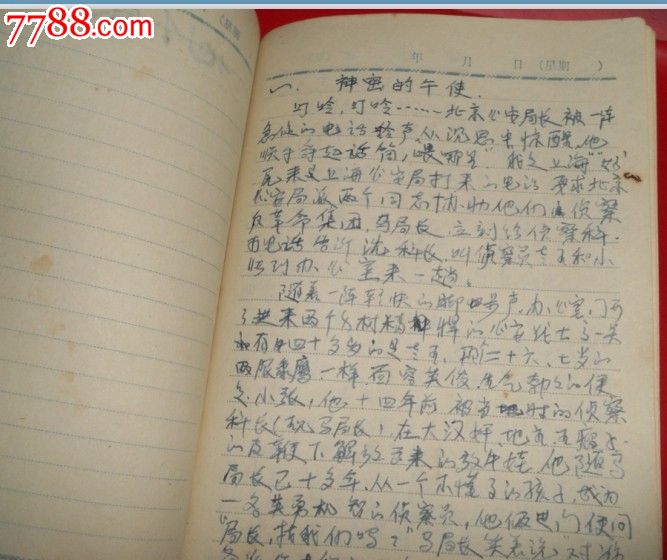 7788.com
年 月 日（星期 ）
一. 神密的午使.
叮呤,叮呤……北京公安局长被一阵
急促的电话铃声从沉思中惊醒,他
顺手拿起话筒,"喂哪里""我是上海""好"
元来是上海公安局打来的电话要求北京
公安局派两个同志协助他们侦察
反革命集团,马局长,立刻给侦察科.
挂电话告诉沈科长,叫侦察员老王和小
张到办公室来一趟。
随着一阵轻快的脚步声,办公室门开
了进来两个身材精悍的公安战士
有四十多岁的是老王,二十六、七岁的
一样面容英俊,生气勃勃的便
是小张,他十四年前被当地时的侦察
科长(现马局长),在大汉奸、地主
的皮鞭下解放出来的放牛娃.他随马
局长已十多年,从一个不懂事的孩子,成为
一名英勇机智的侦察员,他俩进门便问
"局长,找我们吗?"马局长笑着说